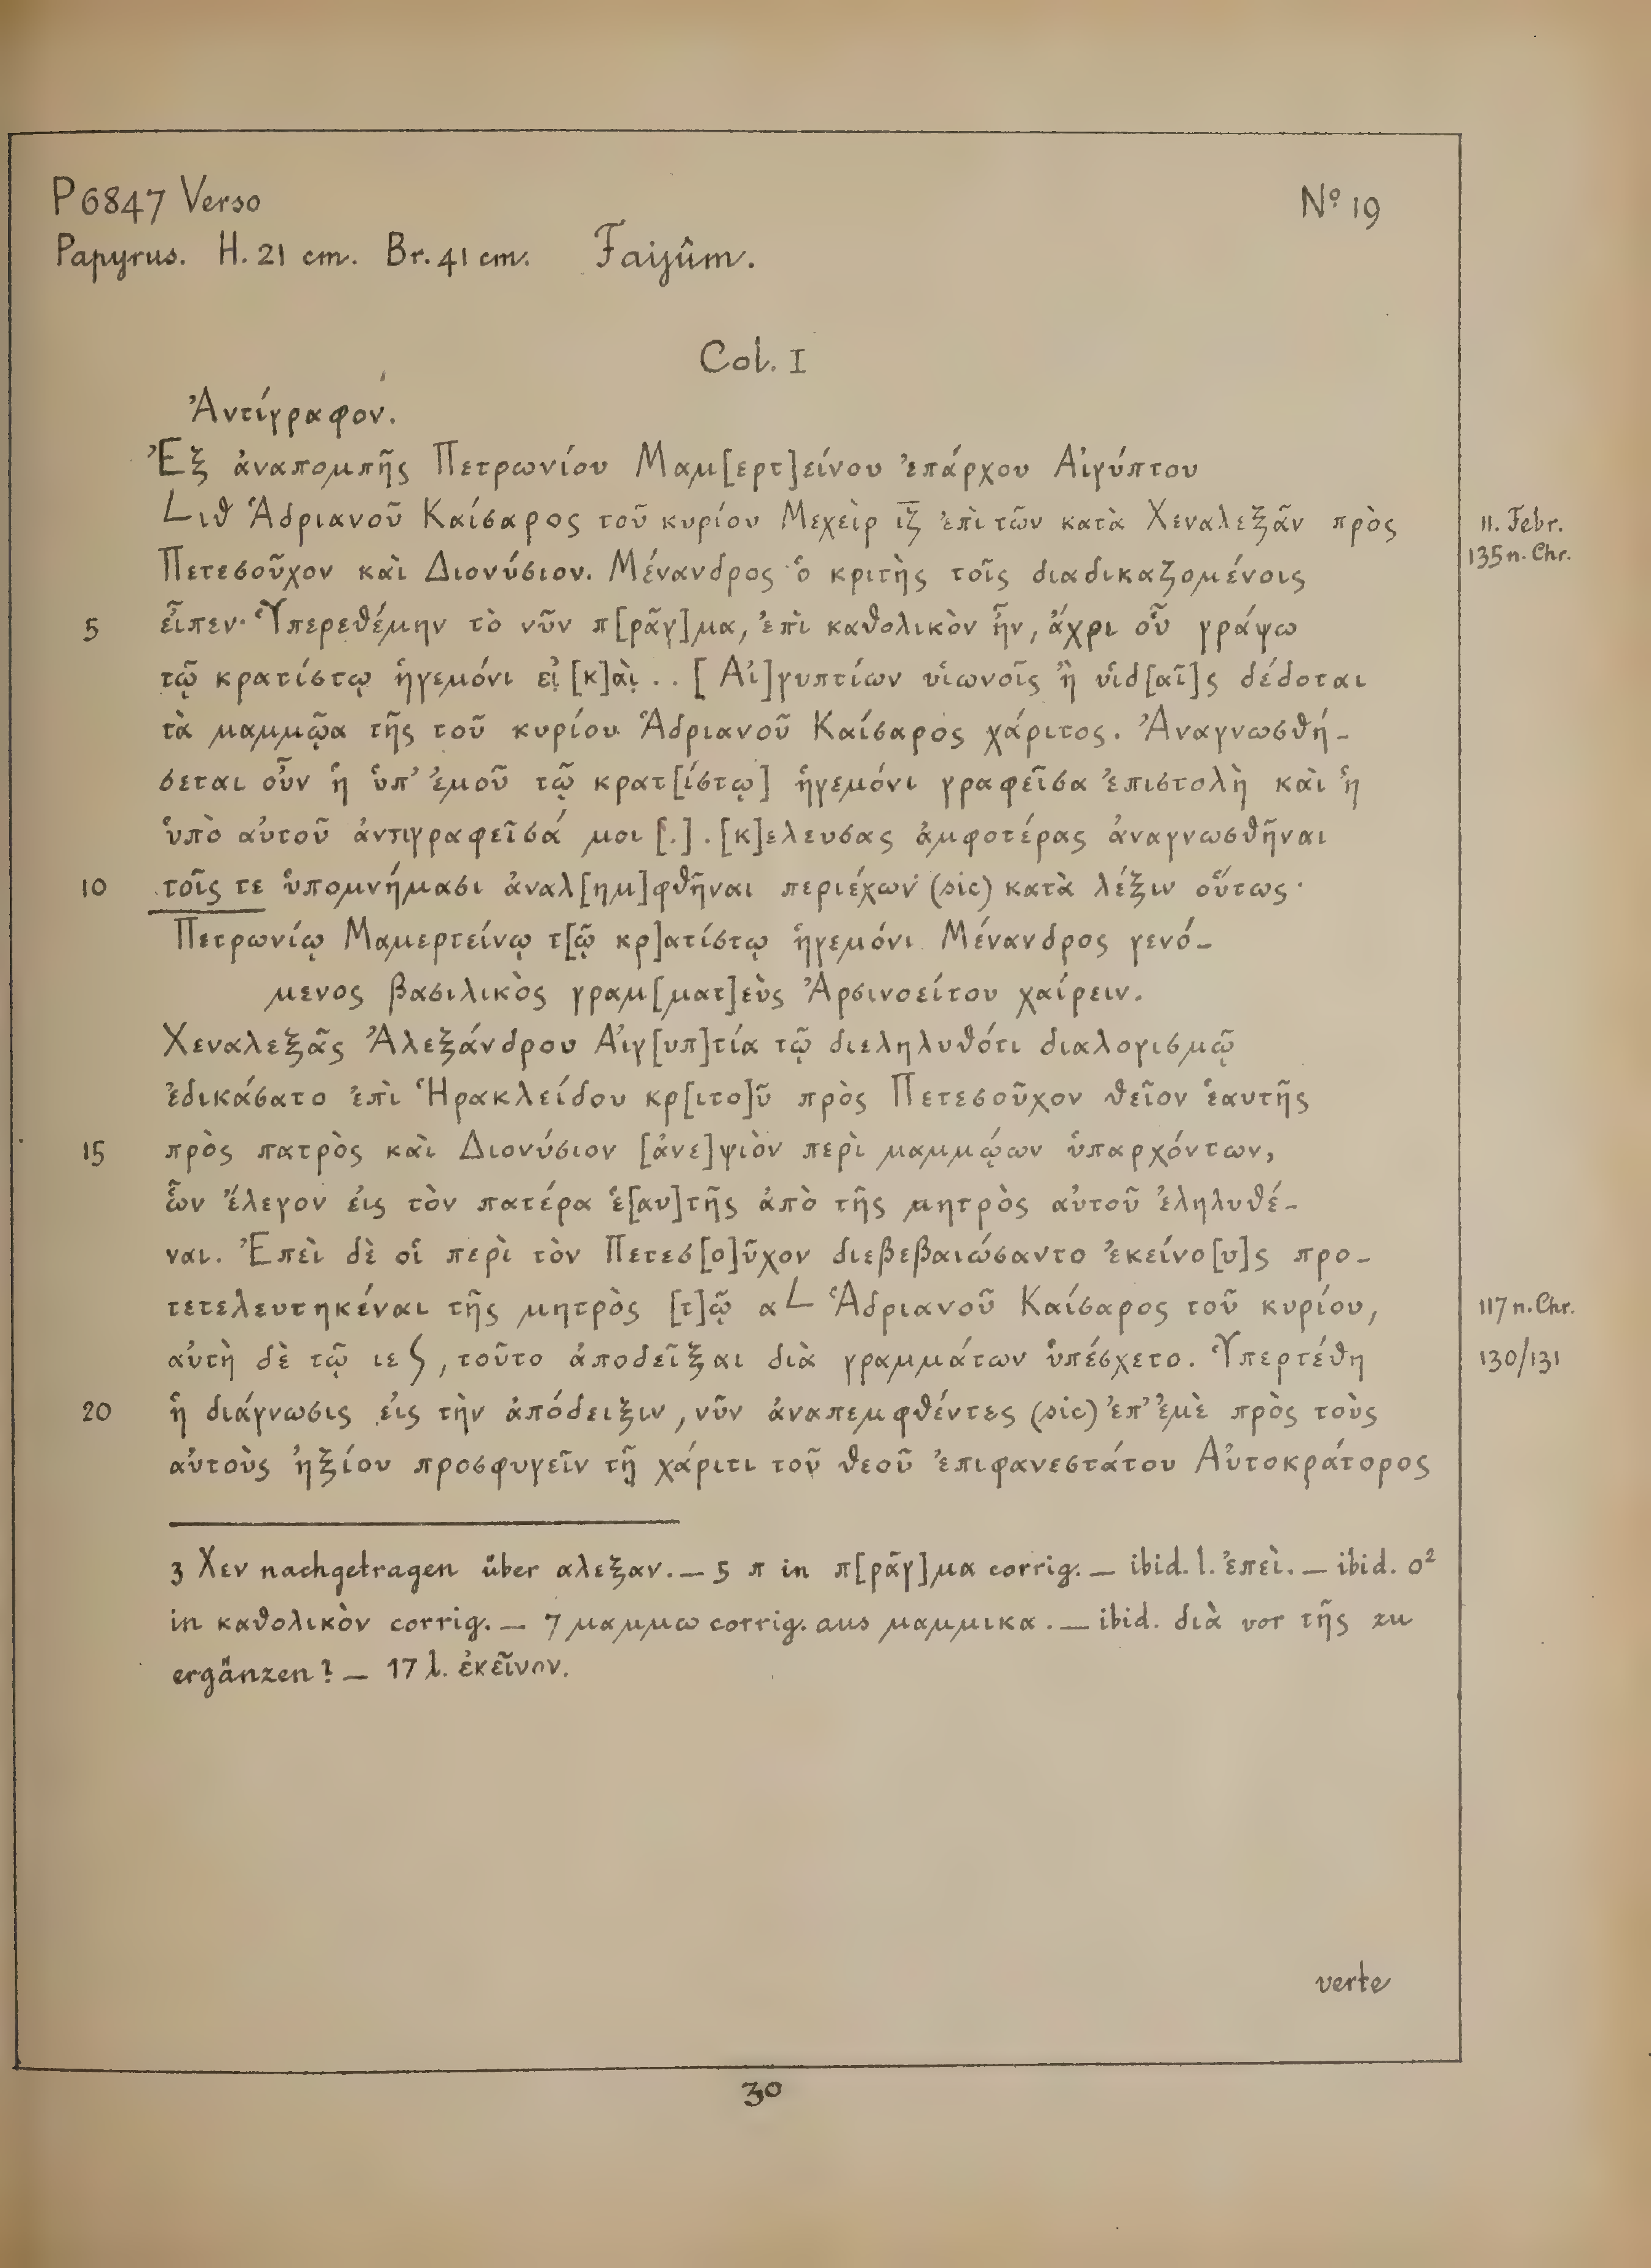 P 6847 Verso Nº 19
Papyrus. H. 21 cm. Br. 41 cm. Faijûm.
Col. I
Ἀντίγραφον.
Ἐξ ἀναπομπῆς Πετρωνίου Μαμ[ερτ]είνου ἐπάρχου Αἰγύπτου
Lιθ Ἁδριανοῦ Καίσαρος τοῦ κυρίου Μεχεὶρ ιζ̅ ἐπὶ τῶν κατὰ Χεναλεξᾶν πρὸς 11. Febr.
135 n. Chr.
Πετεσοῦχον καὶ Διονύσιον. Μένανδρος ὁ κριτὴς τοῖς διαδικαζομένοις
5 εἶπεν· Ὑπερεθέμην τὸ νῦν π[ρᾶγ]μα, ἐπὶ καθολικὸν ἦν, ἄχρι οὗ γράψω
τῷ κρατίστῳ ἡγεμόνι εἰ̣ [κ]α̣ὶ̣ . . [ Αἰ]γυπτίων υἱωνοῖς ἢ υἱδ[αῖ]ς δέδοται
τὰ μαμμῷα τῆς τοῦ κυρίου Ἁδριανοῦ Καίσαρος χάριτος. Ἀναγνωσθή-
σεται οὖν ἡ ὑπ’ ἐμοῦ τῷ κρατ[ίστῳ] ἡγεμόνι γραφεῖσα ἐπιστολὴ καὶ ἡ
ὑπὸ αὐτοῦ ἀντιγραφεῖσά μοι [.] . [κ]ελευσας ἀμφοτέρας ἀναγνωσθῆναι
10 τοῖς τε ὑπομνήμασι ἀναλ[ημ]φθῆναι περιέχων (sic) κατὰ λέξιν οὕτως·
Πετρωνίῳ Μαμερτείνῳ τ[ῷ κρ]ατίστῳ ἡγεμόνι Μένανδρος γενό-
μενος βασιλικὸς γραμ[ματ]εὺς Ἀρσινοείτου χαίρειν.
Χεναλεξᾶς Ἀλεξάνδρου Αἰγ[υπ]τία τῷ διεληλυθότι διαλογισμῷ
ἐδικάσατο ἐπὶ Ἡρακλείδου κρ[ιτο]ῦ πρὸς Πετεσοῦχον θεῖον ἑαυτῆς
15 πρὸς πατρὸς καὶ Διονύσιον [ἀνε]ψιὸν περὶ μαμμῴων ὑπαρχόντων,
ὧν ἔλεγον εἰς τὸν πατέρα ἑ[αυ]τῆς ἀπὸ τῆς μητρὸς αὐτοῦ ἐληλυθέ-
ναι. Ἐπεὶ δὲ οἱ περὶ τὸν Πετεσ[ο]ῦχον διεβεβαιώσαντο ἐκείνο[υ]ς προ-
τετελευτηκέναι τῆς μητρὸς [τ]ῷ αL Ἁδριανοῦ Καίσαρος τοῦ κυρίου, 117 n. Chr.
αὐτὴ δὲ τῷ ιεS, τοῦτο ἀποδεῖξαι διὰ γραμμάτων ὑπέσχετο. Ὑπερτέθη 130/131
20 ἡ διάγνωσις εἰς τὴν ἀπόδειξιν, νῦν ἀναπεμφθέντες (sic) ἐπ’ ἐμὲ πρὸς τοὺς
αὐτοὺς ἠξίου προσφυγεῖν τῇ χάριτι τοῦ θεοῦ ἐπιφανεστάτου Αὐτοκράτορος
3 Χεν nachgetragen über αλεξαν. — 5 π in π[ρᾶγ]μα corrig. — ibid. l. ἐπεὶ. — ibid. ο²
in καθολικὸν corrig. — 7 μαμμω corrig. aus μαμμικα. — ibid. διὰ vor τῆς zu
ergänzen? — 17 l. ἐκεῖνον.
verte
30